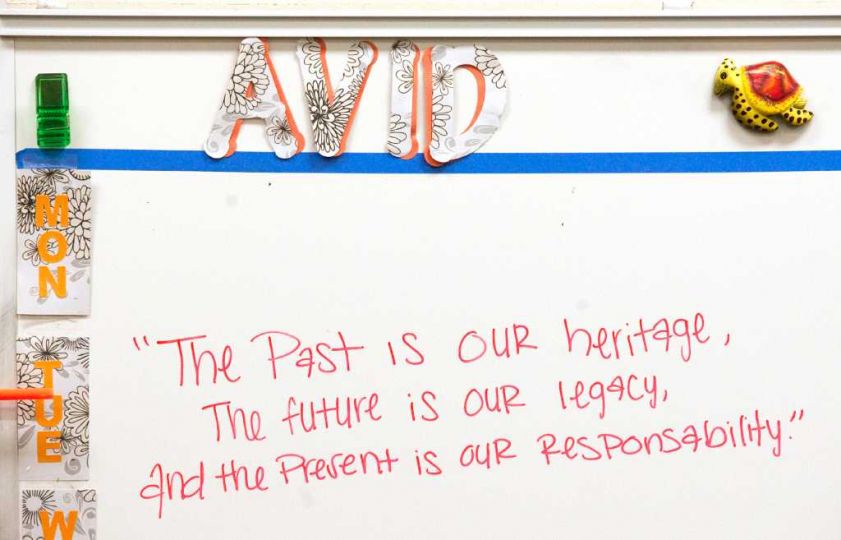 AVID
MON
TUE
W
"The Past is OUR heritage,
The future is OUR legacy,
And the Present is OUR Responsability."